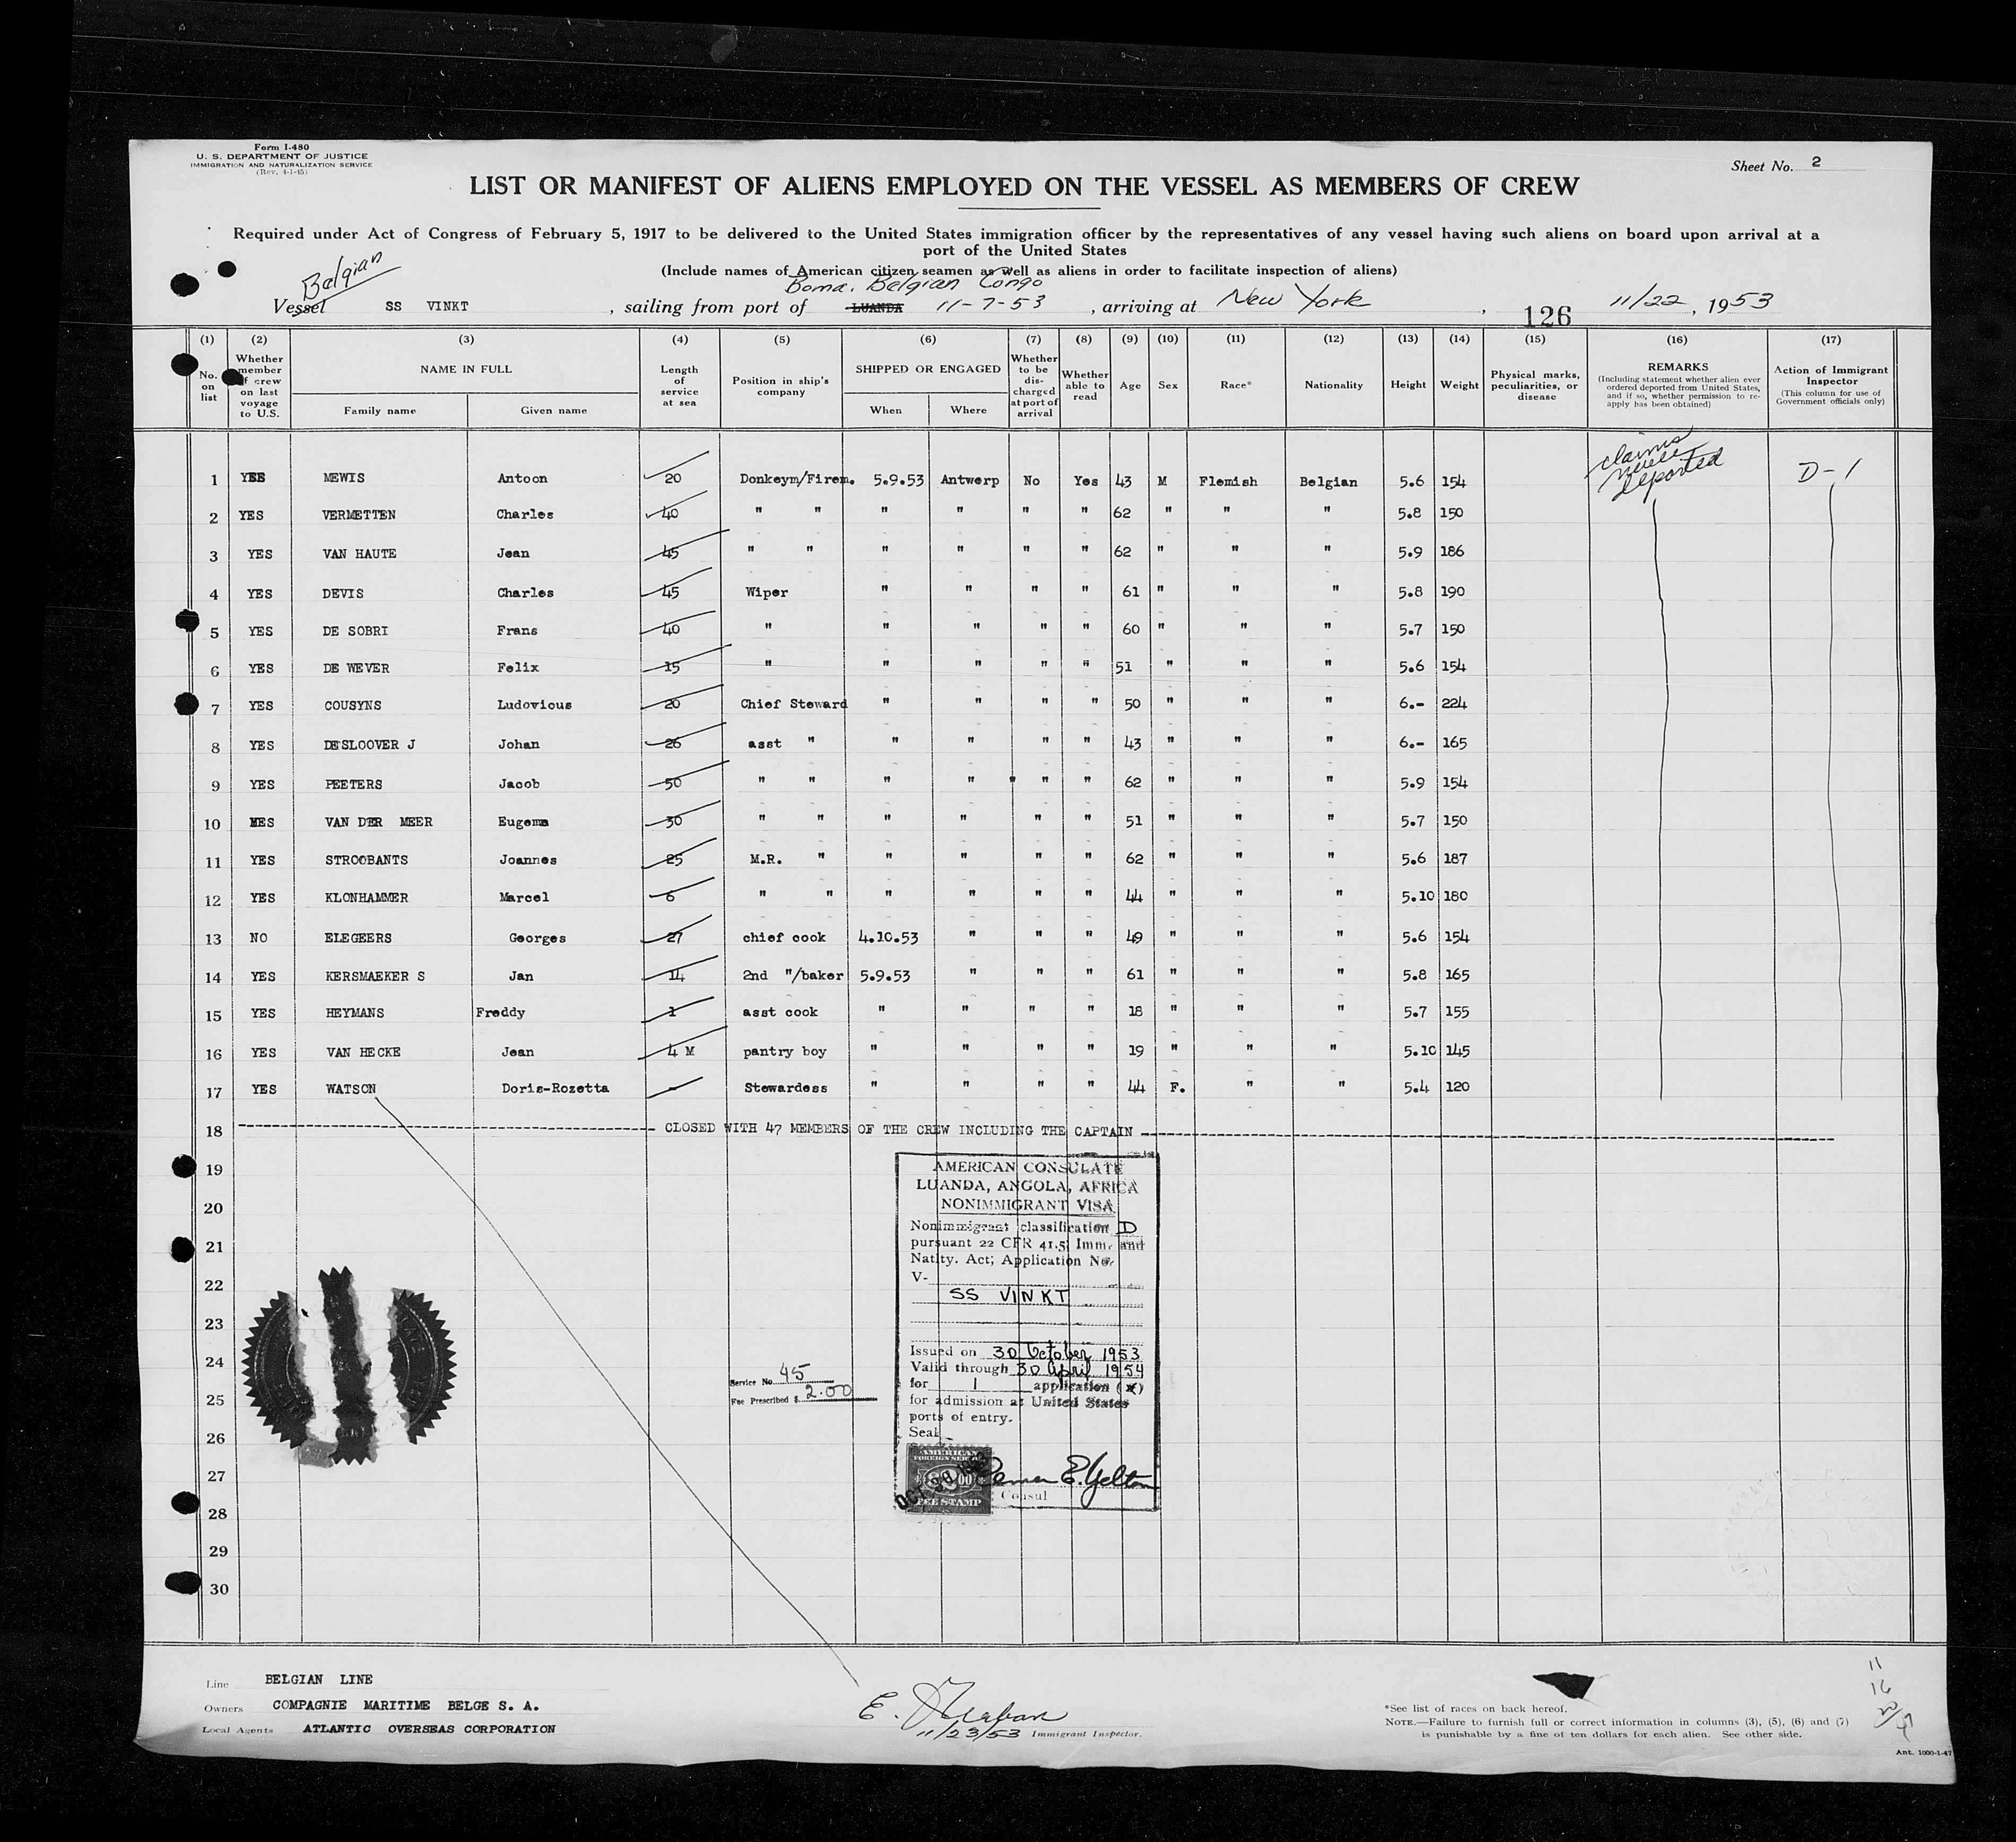 Form I-480
U. S. DEPARTMENT OF JUSTICE
IMMIGRATION AND NATURALIZATION SERVICE
(Rev. 4-1-45)
Sheet No. 2
LIST OR MANIFEST OF ALIENS EMPLOYED ON THE VESSEL AS MEMBERS OF CREW
Required under Act of Congress of February 5, 1917 to be delivered to the United States immigration officer by the representatives of any vessel having such aliens on board upon arrival at a
port of the United States
(Include names of American citizen seamen as well as aliens in order to facilitate inspection of aliens)
Belgian
Boma. Belgian Congo
Vessel SS VINKT, sailing from port of LUANDA 11-7-53, arriving at New York, 126 11/22, 1953
(1) (2) (3) (4) (5) (6) (7) (8) (9) (10) (11) (12) (13) (14) (15) (16) (17)
No. on list
Whether member of crew on last voyage to U.S.
NAME IN FULL
Family name Given name
Length of service at sea
Position in ship's company
SHIPPED OR ENGAGED
When Where
Whether to be discharged at port of arrival
Whether able to read
Age
Sex
Race*
Nationality
Height
Weight
Physical marks, peculiarities, or disease
REMARKS
(Including statement whether alien ever ordered deported from United States, and if so, whether permission to re-apply has been obtained)
Action of Immigrant Inspector
(This column for use of Government officials only)
claims never deported
D-1
1 YES MEWIS Antoon 20 Donkeym/Firem. 5.9.53 Antwerp No Yes 43 M Flemish Belgian 5.6 154
2 YES VERMETTEN Charles 40 " " " " " " 62 " " " 5.8 150
3 YES VAN HAUTE Jean 45 " " " " " " 62 " " " 5.9 186
4 YES DEVIS Charles 45 Wiper " " " " 61 " " " 5.8 190
5 YES DE SOBRI Frans 40 " " " " " 60 " " " 5.7 150
6 YES DE WEVER Felix 15 " " " " " 51 " " " 5.6 154
7 YES COUSYNS Ludovicus 20 Chief Steward " " " " 50 " " " 6.- 224
8 YES DESLOOVER J Johan 26 asst " " " " " 43 " " " 6.- 165
9 YES PEETERS Jacob 50 " " " " " " " 62 " " " 5.9 154
10 YES VAN DER MEER Eugema 30 " " " " " " 51 " " " 5.7 150
11 YES STROOBANTS Joannes 25 M.R. " " " " " 62 " " " 5.6 187
12 YES KLONHAMMER Marcel 6 " " " " " " 44 " " " 5.10 180
13 NO ELEGEERS Georges 27 chief cook 4.10.53 " " " 49 " " " 5.6 154
14 YES KERSMAEKER S Jan 14 2nd "/baker 5.9.53 " " " 61 " " " 5.8 165
15 YES HEYMANS Freddy 1 asst cook " " " " 18 " " " 5.7 155
16 YES VAN HECKE Jean 4 M pantry boy " " " " 19 " " " 5.10 145
17 YES WATSON Doris-Rozetta - Stewardess " " " " 44 F. " " 5.4 120
18 CLOSED WITH 47 MEMBERS OF THE CREW INCLUDING THE CAPTAIN
19
20
21
22
23
24
25
26
27
28
29
30
AMERICAN CONSULATE
LUANDA, ANGOLA, AFRICA
NONIMMIGRANT VISA
Nonimmigrant classification D
pursuant 22 CFR 41.5; Imm. and
Natlty. Act; Application No.
V-
SS VINKT
Issued on 30 October 1953
Valid through 30 April 1954
for 1 application (x)
for admission at United States
ports of entry.
Seal
Consul
AMERICAN
FOREIGN SERVICE
FEE STAMP
Service No. 45
Fee Prescribed $ 2.00
Line BELGIAN LINE
Owners COMPAGNIE MARITIME BELGE S. A.
Local Agents ATLANTIC OVERSEAS CORPORATION
11/23/53 Immigrant Inspector.
*See list of races on back hereof.
NOTE.—Failure to furnish full or correct information in columns (3), (5), (6) and (7)
is punishable by a fine of ten dollars for each alien. See other side.
11
16
20
47
Ant. 1000-1-47